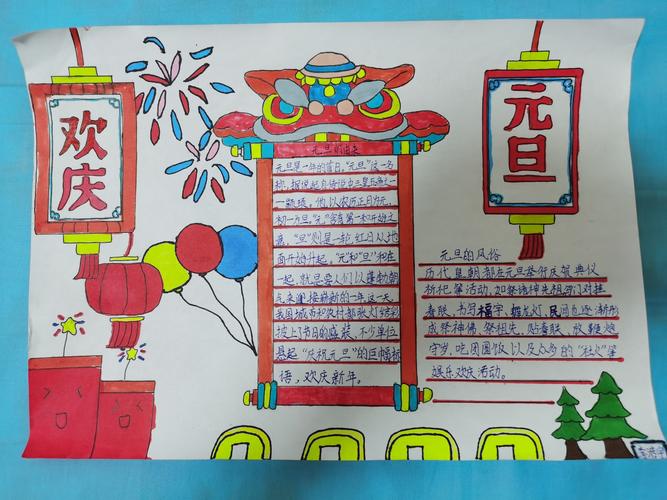 欢庆
元旦
元旦的由来
元旦是一年的首日,"元旦"这一名
称,据说起自传说中三皇五帝之一
一颛顼,他以农历正月为元,
初一为旦,"元"含有第一和开始之
意,"旦"则是一轮红日从地
面开始升起,"元"和"旦"和在
一起,就是要人们以蓬勃朝
气来迎接崭新的一年这一天,
我国城市和农村都张灯结彩
披上节日的盛装,不少单位
悬起"庆祝元旦"的巨幅标
语,欢庆新年。
元旦的风俗
历代皇朝都在元旦举行庆贺典仪
祈祀等活动,如祭诸神先祖们对挂
春联,书写福字、舞龙灯,民间也逐渐形
成祭神佛、祭祖先、贴春联、放鞭炮
守岁、吃团圆饭以及众多的"社火"等
娱乐欢庆活动。